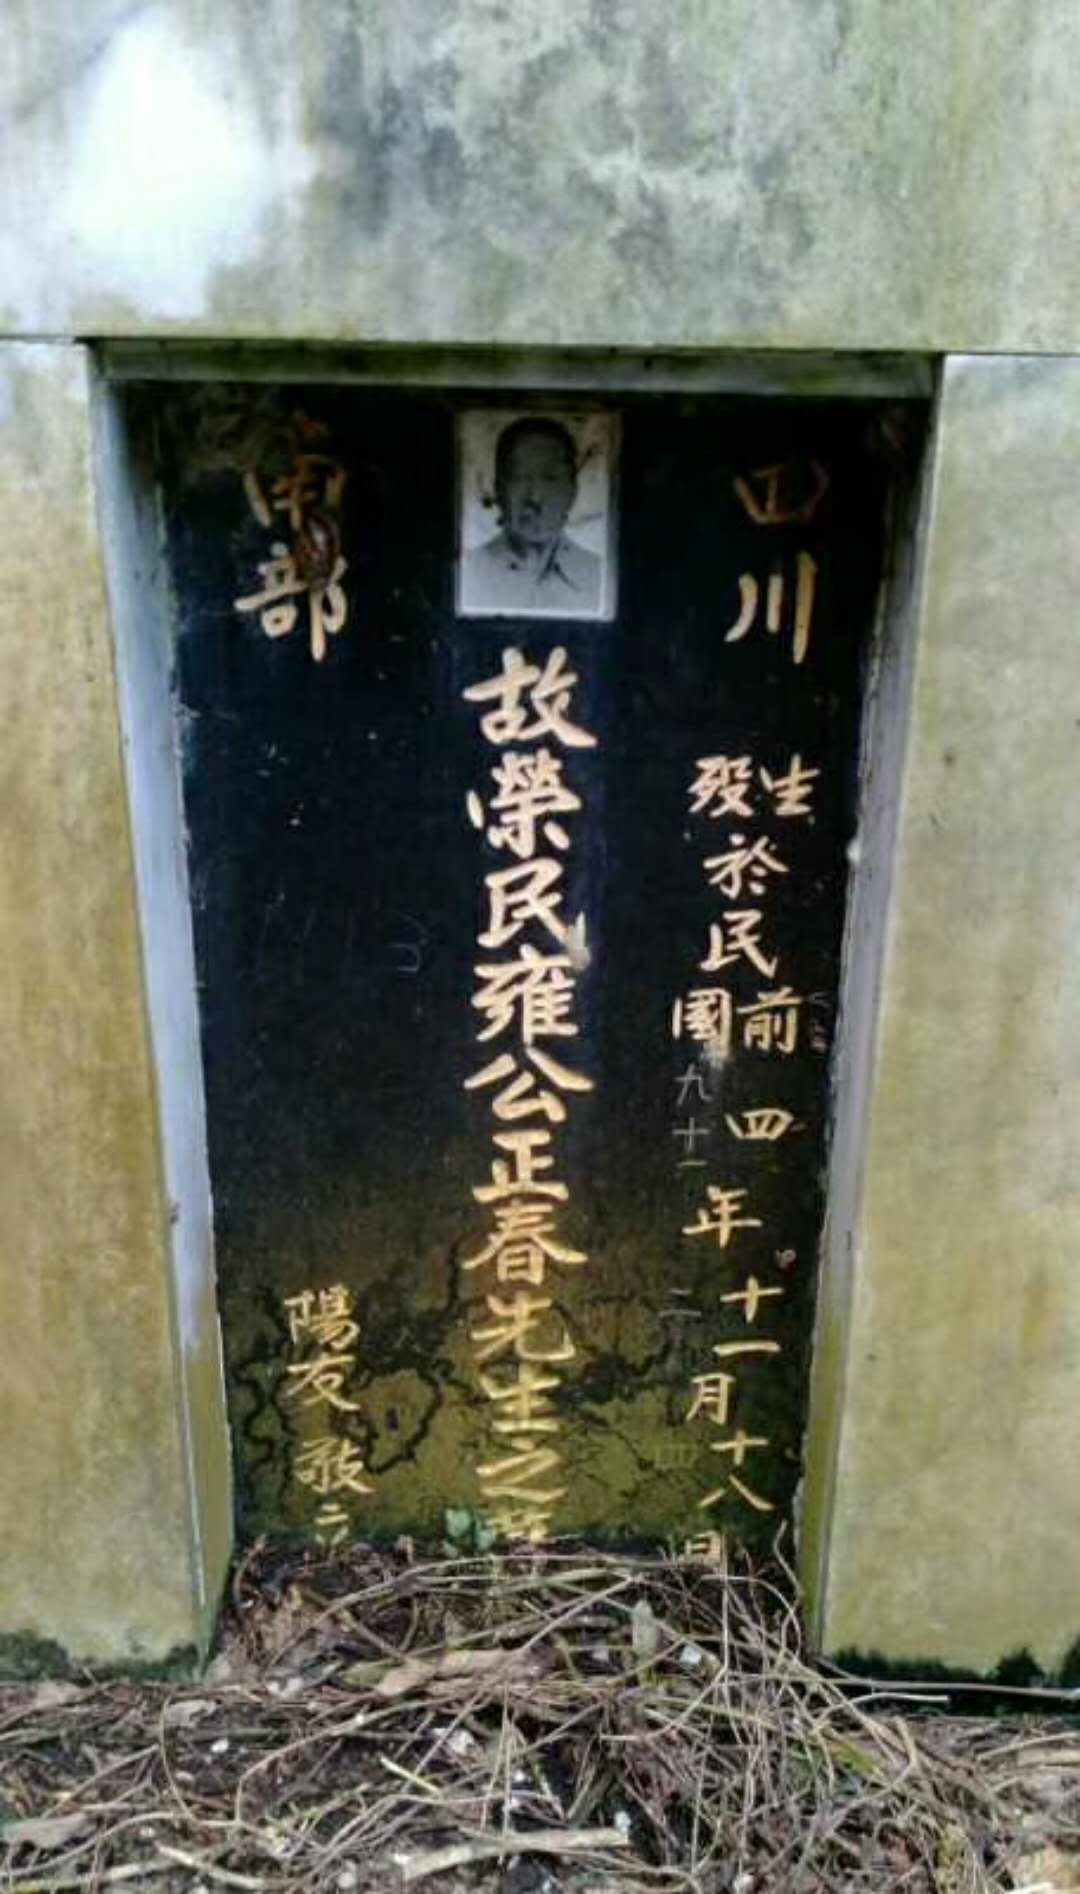 四川
南部
生於民前四年十一月十八日
歿於民國九十一年二月
故榮民雍公正春先生之
陽友敬